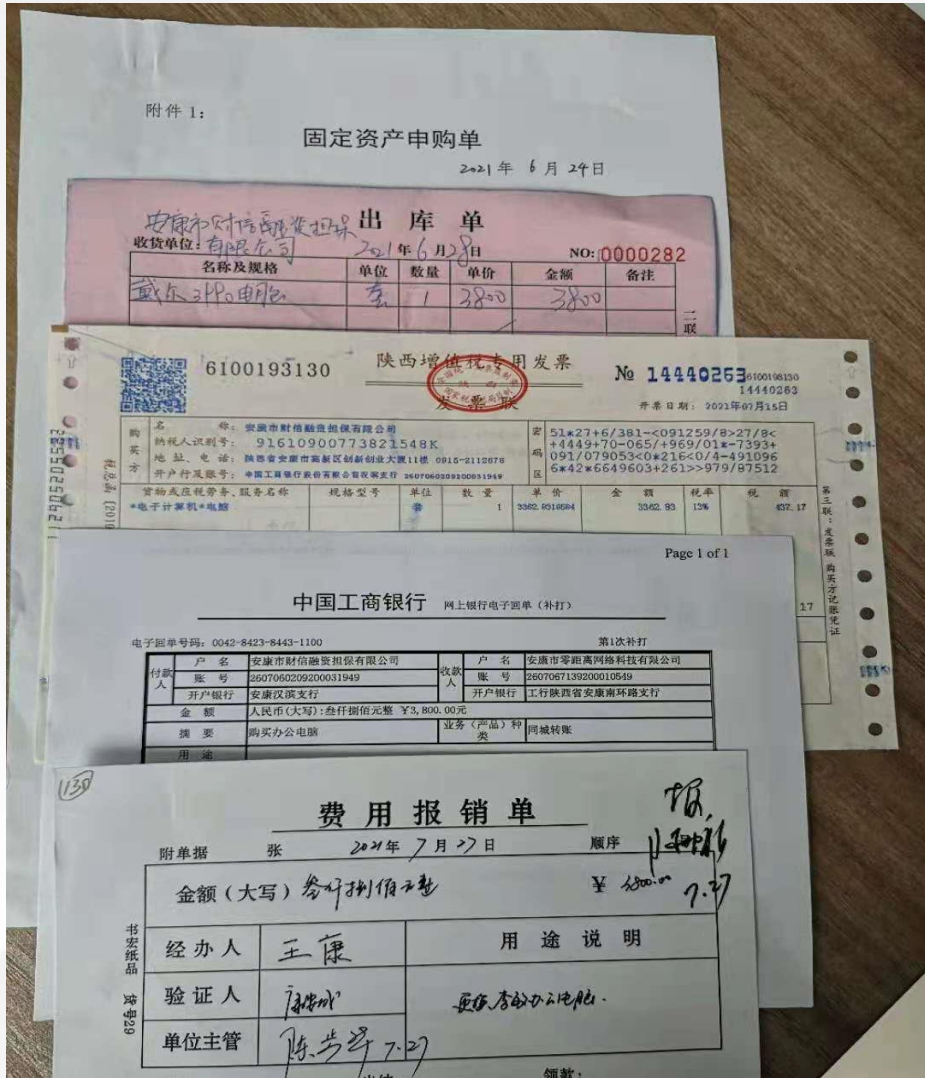 附件 1:
固定资产申购单
2021年 6月 24日
安康市财信融资担保
出 库 单
收货单位: 有限公司 2021年6月28日 NO: 0000282
名称及规格 单位 数量 单价 金额 备注
戴尔3990电脑 套 1 3800 3800
二联
6100193130 陕西增值税专用发票 № 14440263 6100193130
14440263
发 票 联
开票日期: 2021年07月15日
购买方
名 称: 安康市财信融资担保有限公司
纳税人识别号: 91610900773821548K
地 址、电 话: 陕西省安康市高新区创新创业大厦11楼 0915-2112678
开户行及账号: 中国工商银行股份有限公司 2607060209200031949
密码区
51*27+6/381-<091259/8>27/8<
+4449+70-065/+969/01*-7393+
091/079053<0*216<0/4-491096
6*42*6649603+261>>979/87512
货物或应税劳务、服务名称 规格型号 单位 数 量 单 价 金 额 税率 税 额
*电子计算机*电脑 套 1 3362.93 13% 437.17
17
第三联:发票联 购买方记账凭证
Page 1 of 1
中国工商银行 网上银行电子回单(补打)
电子回单号码: 0042-8423-8443-1100 第1次补打
付款人 户 名 安康市财信融资担保有限公司 收款人 户 名 安康市零距离网络科技有限公司
账 号 2607060209200031949 账 号 2607067139200010549
开户银行 安康汉滨支行 开户银行 工行陕西省安康南环路支行
金 额 人民币(大写):叁仟捌佰元整 ¥3,800.00元
摘 要 购买办公电脑 业务(产品)种类 同城转账
用 途
130
费 用 报 销 单
附单据 张 2021年 7月 27日 顺序
金额(大写) 叁仟捌佰元整 ¥ 3800.00
7.27
经 办 人 王康 用 途 说 明
验 证 人
单位主管 7.27
书宏纸品 货号29
领款: